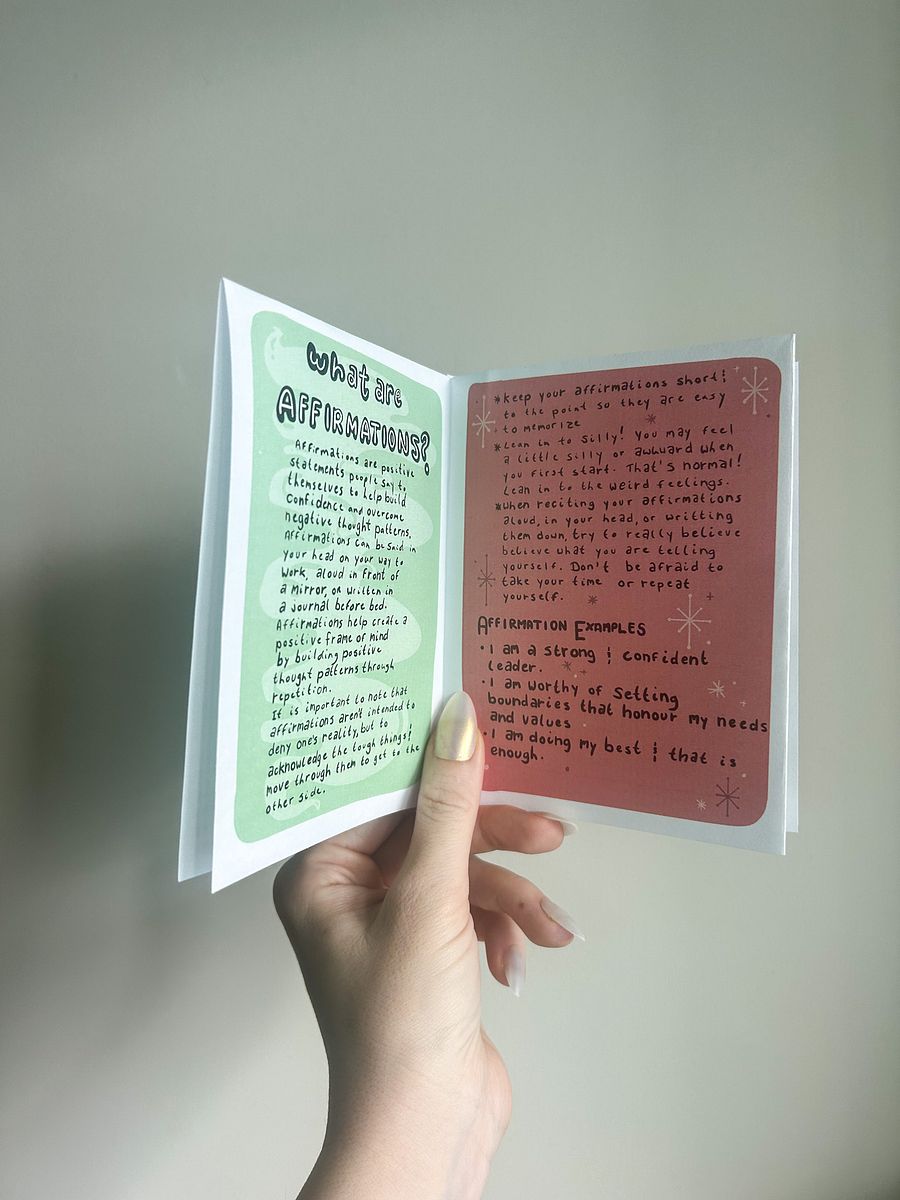 What are
AFFIRMATIONS?
Affirmations are positive
statements people say to
themselves to help build
confidence and overcome
negative thought patterns.
Affirmations can be said in
your head on your way to
work, aloud in front of
a mirror, or written in
a journal before bed.
Affirmations help create a
positive frame of mind
by building positive
thought patterns through
repetition.
It is important to note that
affirmations aren't intended to
deny one's reality, but to
acknowledge the tough things &
move through them to get to the
other side.
*Keep your affirmations short &
to the point so they are easy
to memorize
*Lean in to silly! You may feel
a little silly or awkward when
you first start. That's normal!
Lean in to the weird feelings.
*When reciting your affirmations
aloud, in your head, or writting
them down, try to really believe
believe what you are telling
yourself. Don't be afraid to
take your time or repeat
yourself.
AFFIRMATION EXAMPLES
• I am a strong & confident
leader.
• I am worthy of setting
boundaries that honour my needs
and values
• I am doing my best & that is
enough.